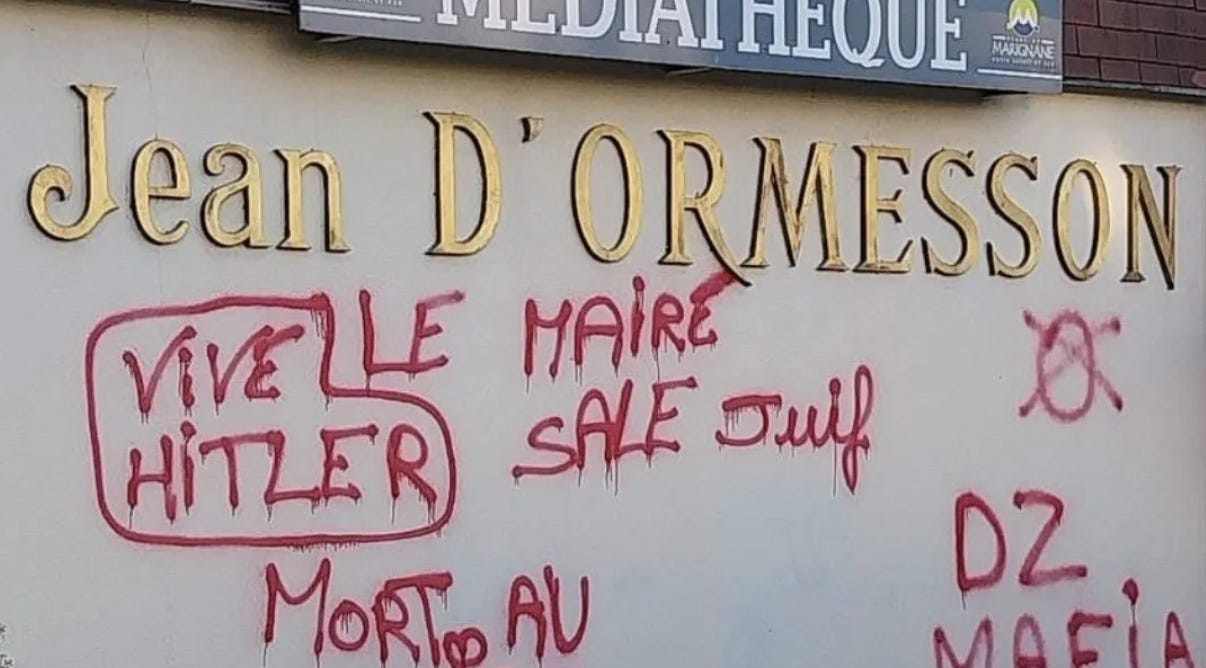 MÉDIATHÈQUE
MARIGNANE
Jean D'ORMESSON
VIVE
HITLER
LE MAIRE
SALE Juif
MORT AU
DZ
MAFIA